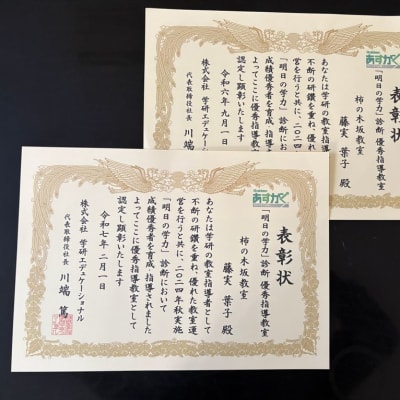 あすがく
表彰状
「明日の学力」診断 優秀指導教室
柿の木坂教室
藤実 葉子 殿
あなたは学研の教室指導者として
不断の研鑽を重ね、優れた教室運
営を行うと共に、二〇二四年秋実施
「明日の学力」診断において
成績優秀者を育成、指導されました
よってここに優秀指導教室として
認定し顕彰いたします
令和七年二月一日
株式会社 学研エデュケーショナル
代表取締役社長 川端 篤
あすがく
表彰状
「明日の学力」診断 優秀指導教室
柿の木坂教室
藤実 葉子 殿
あなたは学研の教室指導
不断の研鑽を重ね、優れ
営を行うと共に、二〇二四
「明日の学力」診断にお
成績優秀者を育成、指導
よってここに優秀指導教
認定し顕彰いたします
令和六年九月一日
株式会社 学研エデュケー
代表取締役社長 川端